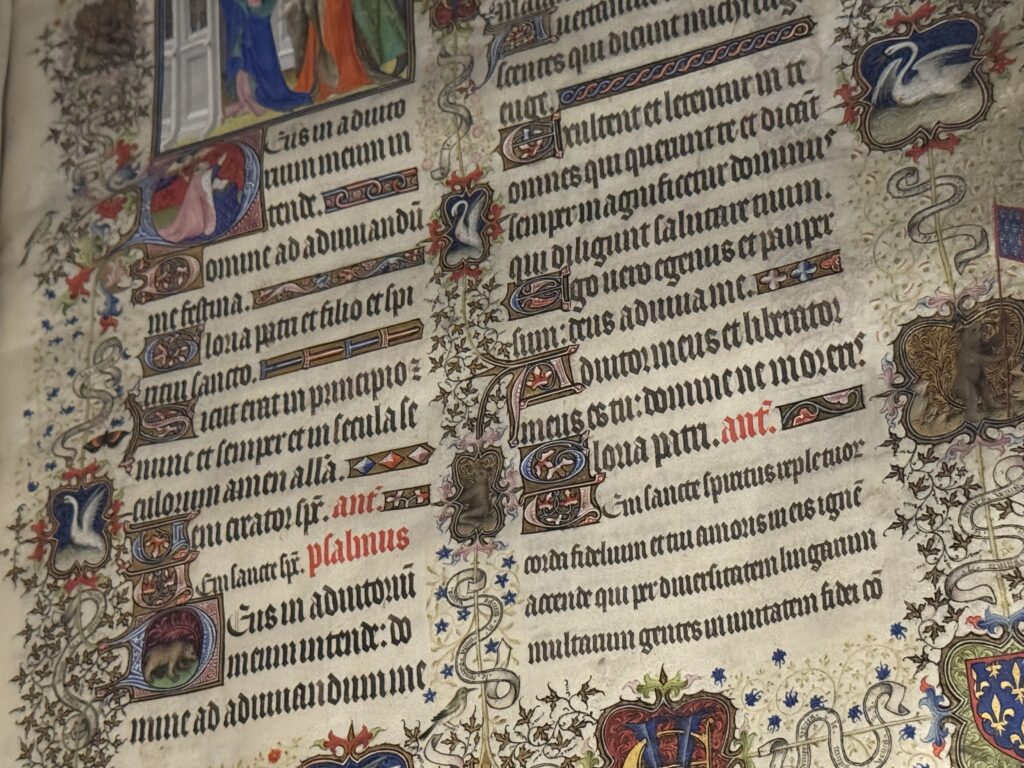 Deus in adiuto
rium meum in
tende.
Domine ad adiuuandū
me festina.
Gloria patri et filio et spi
ritui sancto.
Sicut erat in principio
nunc et semper et in secula se
culorum amen all̄a.
Veni creator sp̄c. ant̄.
Veni sancte sp̄c. psalmus
Deus in adiutoriū
meum intende: do
mine ad adiuuandum me
uertantur
scentes qui dicunt michi euge
euge.
Exultent et letentur in te
omnes qui querunt te et dicāt
semper magnificetur dominus
qui diligunt salutare tuum.
Ego uero egenus et pauper
sum: deus adiuua me.
Adiutor meus et liberator
meus es tu: domine ne moreris
Gloria patri. ant̄.
Veni sancte spiritus reple tuor
corda fidelium et tui amoris in eis ignē
accende qui per diuersitatem linguarum
multarum gentes in unitatem fidei cō